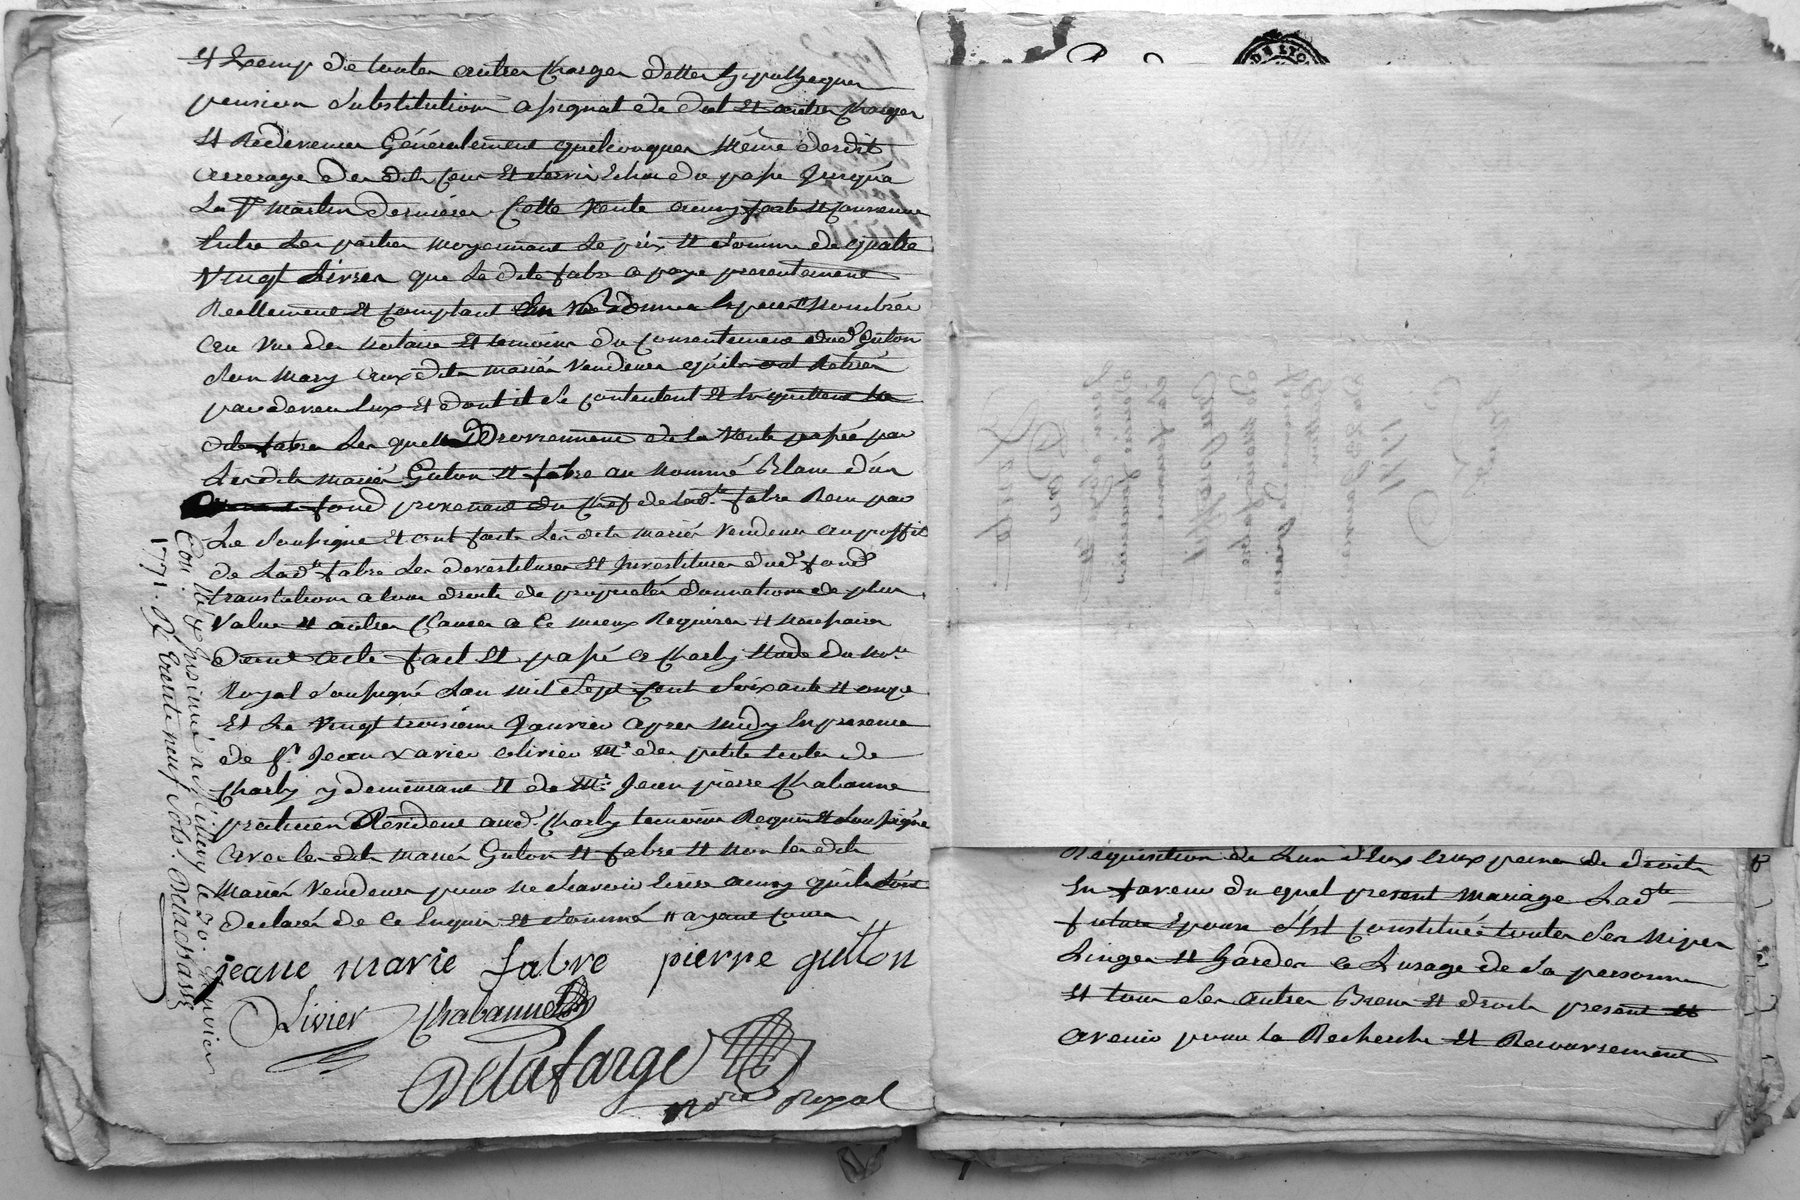 et Exemp de toutes autres Charges dettes hypotheques
pension substitution assignat de dot et autres charges
et Redevances Généralement quelconques même desdit
arrerage des dits cens et servis Echu du passé Jusqu'a
La St martin dernière Cette Vente ainsy faite et convenue
Entre Les parties moyennant Le prix et somme de quatre
Vingt Livres que La dite fabre a payé presentement
Reellement et comptant
au vue des notaire et temoins du consentement dud. Guton
son mary auxdits mariés Vendeurs qu'ils ont Retirés
pardevers Eux et dont ils se contentent et En quittent La
dite fabre Les quels proviennent de la Vente passée par
Lesdits mariés Guton et fabre au nommé Blanc d'un
fond provenant du Chef de Lad.te fabre Recu par
Le soussigné et ont faits Les dits mariés Vendeurs au proffit
de Lad.te fabre Les devestitures et Investitures dud. fond
translations a tous droits de propriété donnations de plus
Value et autres Clauses a Ce mieux Requises et necessaires
Dont acte fait et passé a Charly Etude du No.re
Royal soussigné L'an mil sept cent soixante et onze
et Le Vingt troisieme Janvier apres midy En presence
de Sr. Jean xavier olivier M.e des petites Ecoles de
Charly y demeurant et de M.e Jean pierre Chabanne
praticien Résident aud. Charly temoins Requis et soussignés
avec les dits mariés Guton et fabre et non les dits
Mariés Vendeurs pour ne sçavoir Ecrire ainsy qu'ils L'ont
declaré de Ce Enquis et sommé
jeane marie fabre pierre gutton
Livier Chabanne
Delafarge
no.re royal
Con.lé et Insinué à Millery le 30. Janvier
1771. R. trente neuf sols. Delachassé
DE LYON
Requisition de L'un d'Eux aux peines de droits
En faveur du quel present mariage Lad.te
future Epouse s'Est Constituée toutes ses nipes
Linges et hardes a L'usage de sa personne
et tous ses autres Biens et droits presents et
avenir pour la Recherche et Recouvrement